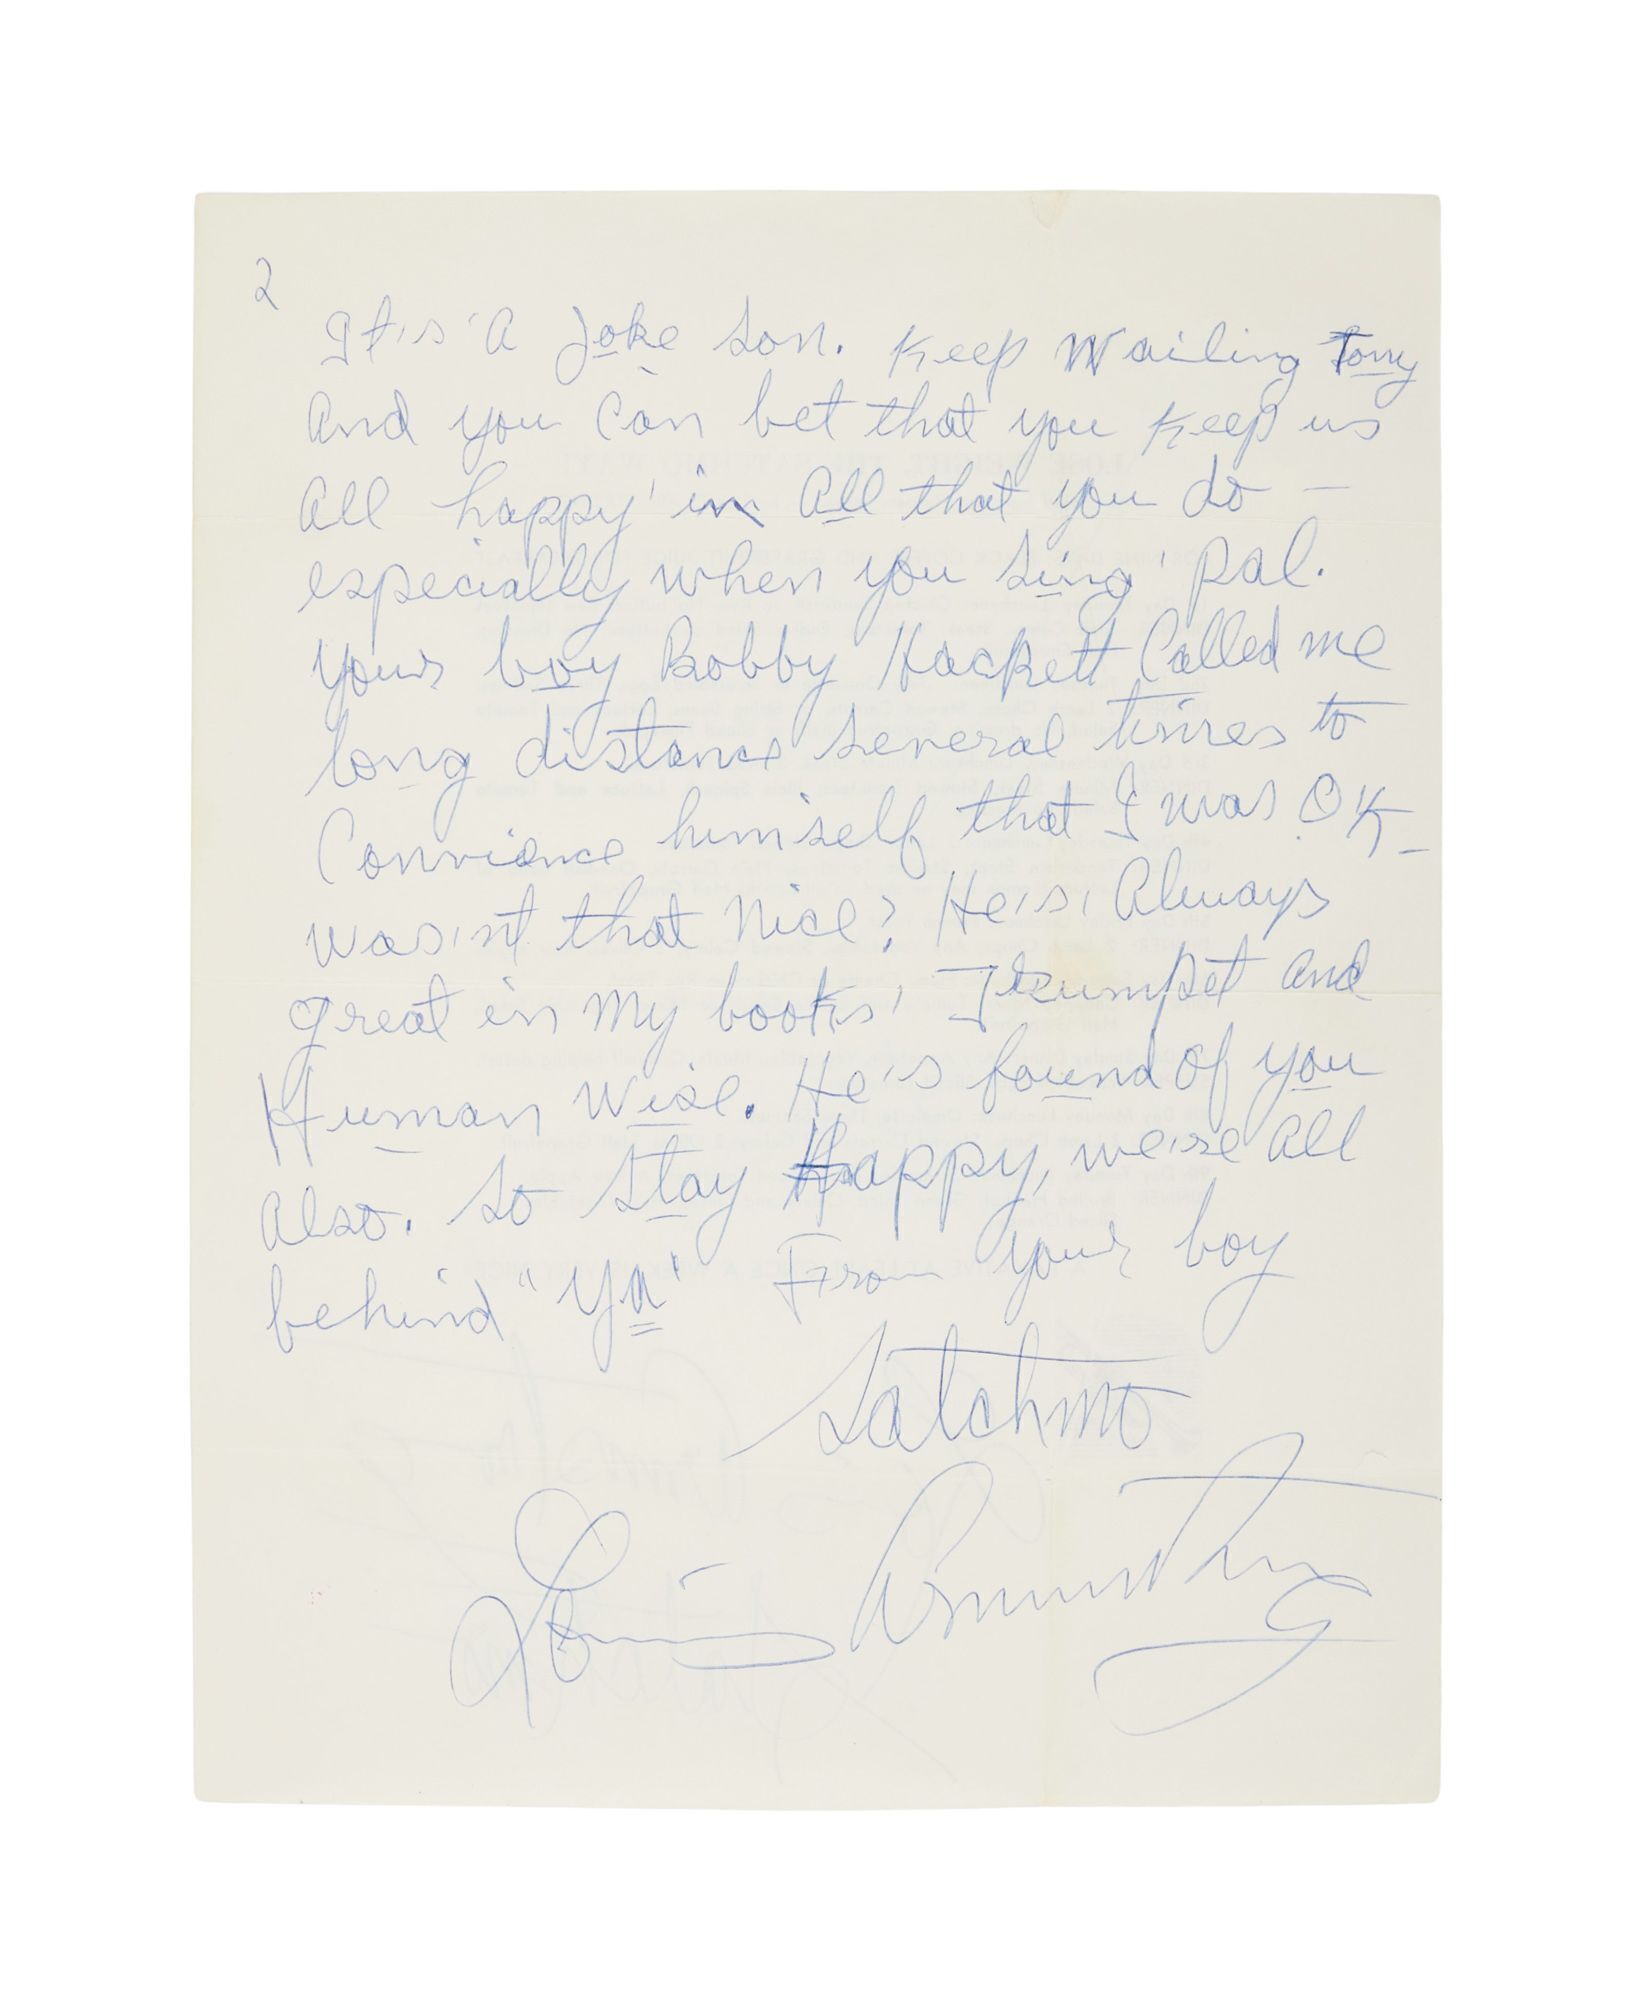 2
It's A Joke Son. Keep Wailing Tony
And you Can bet that you Keep us
All happy' in All that you do –
especially when you Sing' pal.
Your boy Bobby Hackett Called me
long distance several times to
Convience himself that I was OK –
Was'nt that Nice? He's, Always
great in My books' Trumpet and
Human Wise. He's found of you
Also. So Stay Happy, we're All
behind "Ya" From your boy
Satchmo
Louis Armstrong